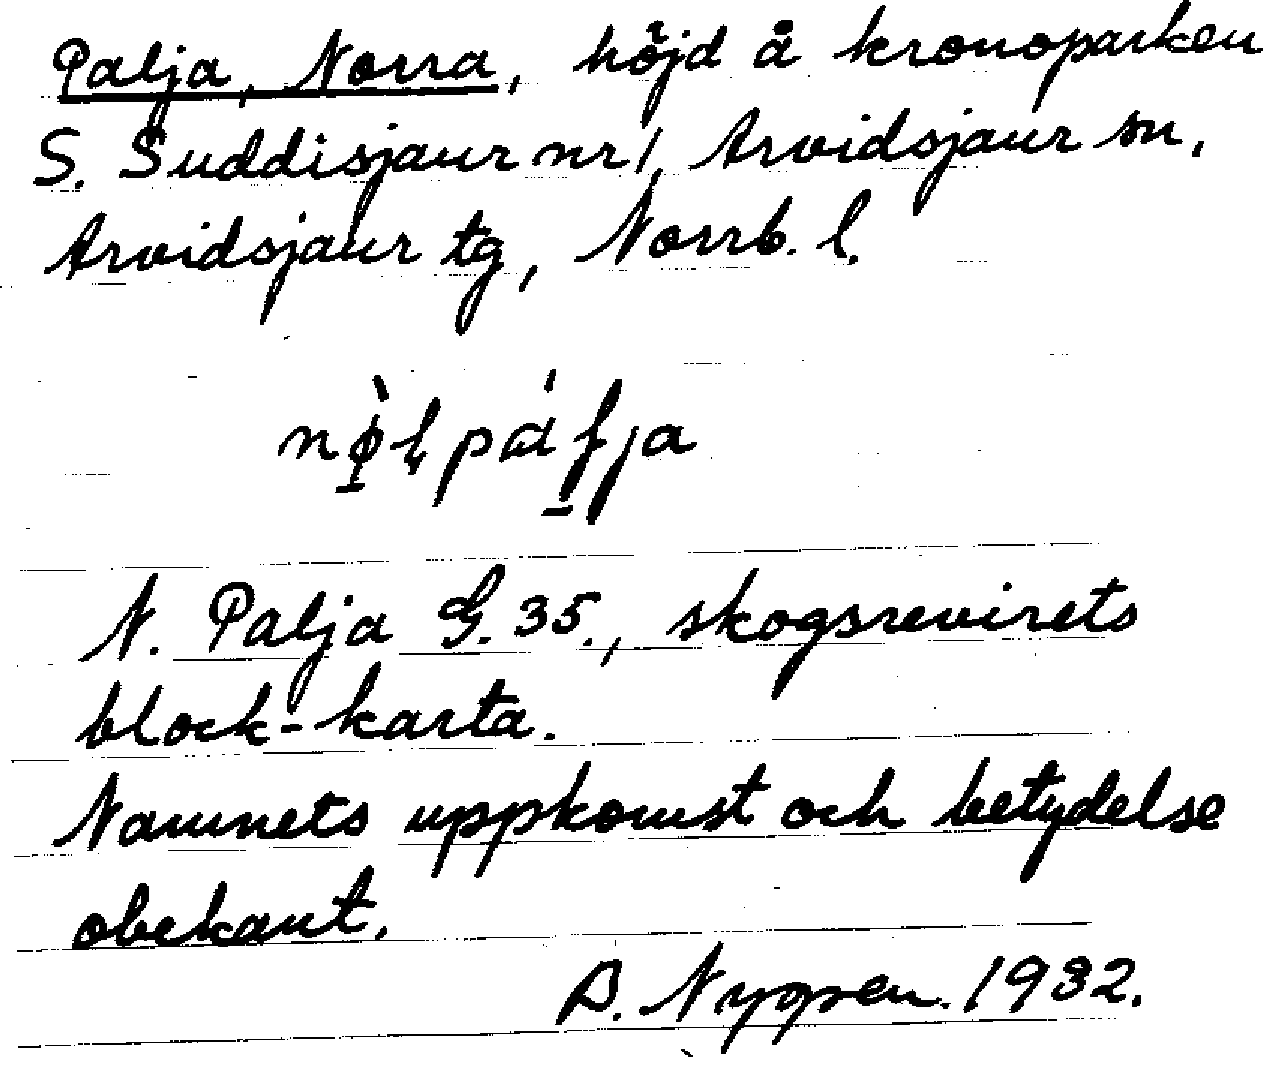 Palja, Norra, höjd å kronoparken
S. Suddisjaur nr 1, Arvidsjaur sn,
Arvidsjaur tg, Norrb. l.
N. Palja G. 35., skogsrevirets
block-karta.
Namnets uppkomst och betydelse
obekant.
A. Nygren. 1932.